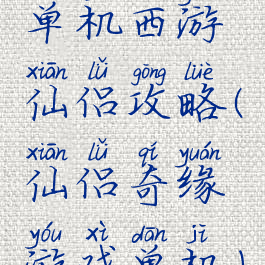 单机西游
xiān lǚ gōng lüè
仙侣攻略(
xiān lǚ qí yuán
仙侣奇缘
yóu xì dān jī
游戏单机)